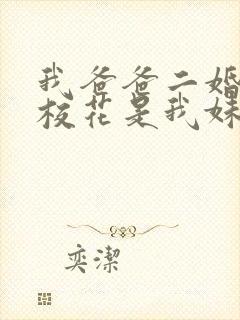 我爸爸二婚
校花是我妹
奕潔